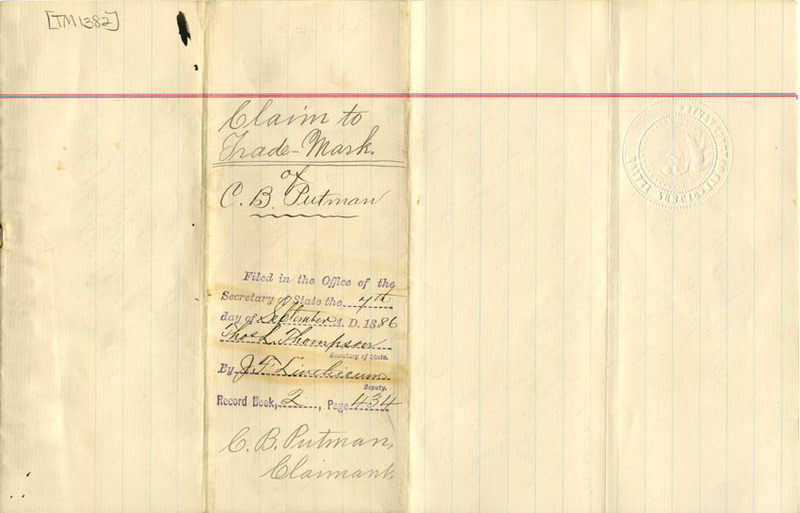 [TM 1382]
Claim to
Trade-Mark.
of
C. B. Putman
Filed in the Office of the
Secretary of State the 7th
day of September A. D. 1886
Thos L. Thompson
Secretary of State.
By J. T.
Deputy.
Record Book, 2, Page 434
C. B. Putman,
Claimant